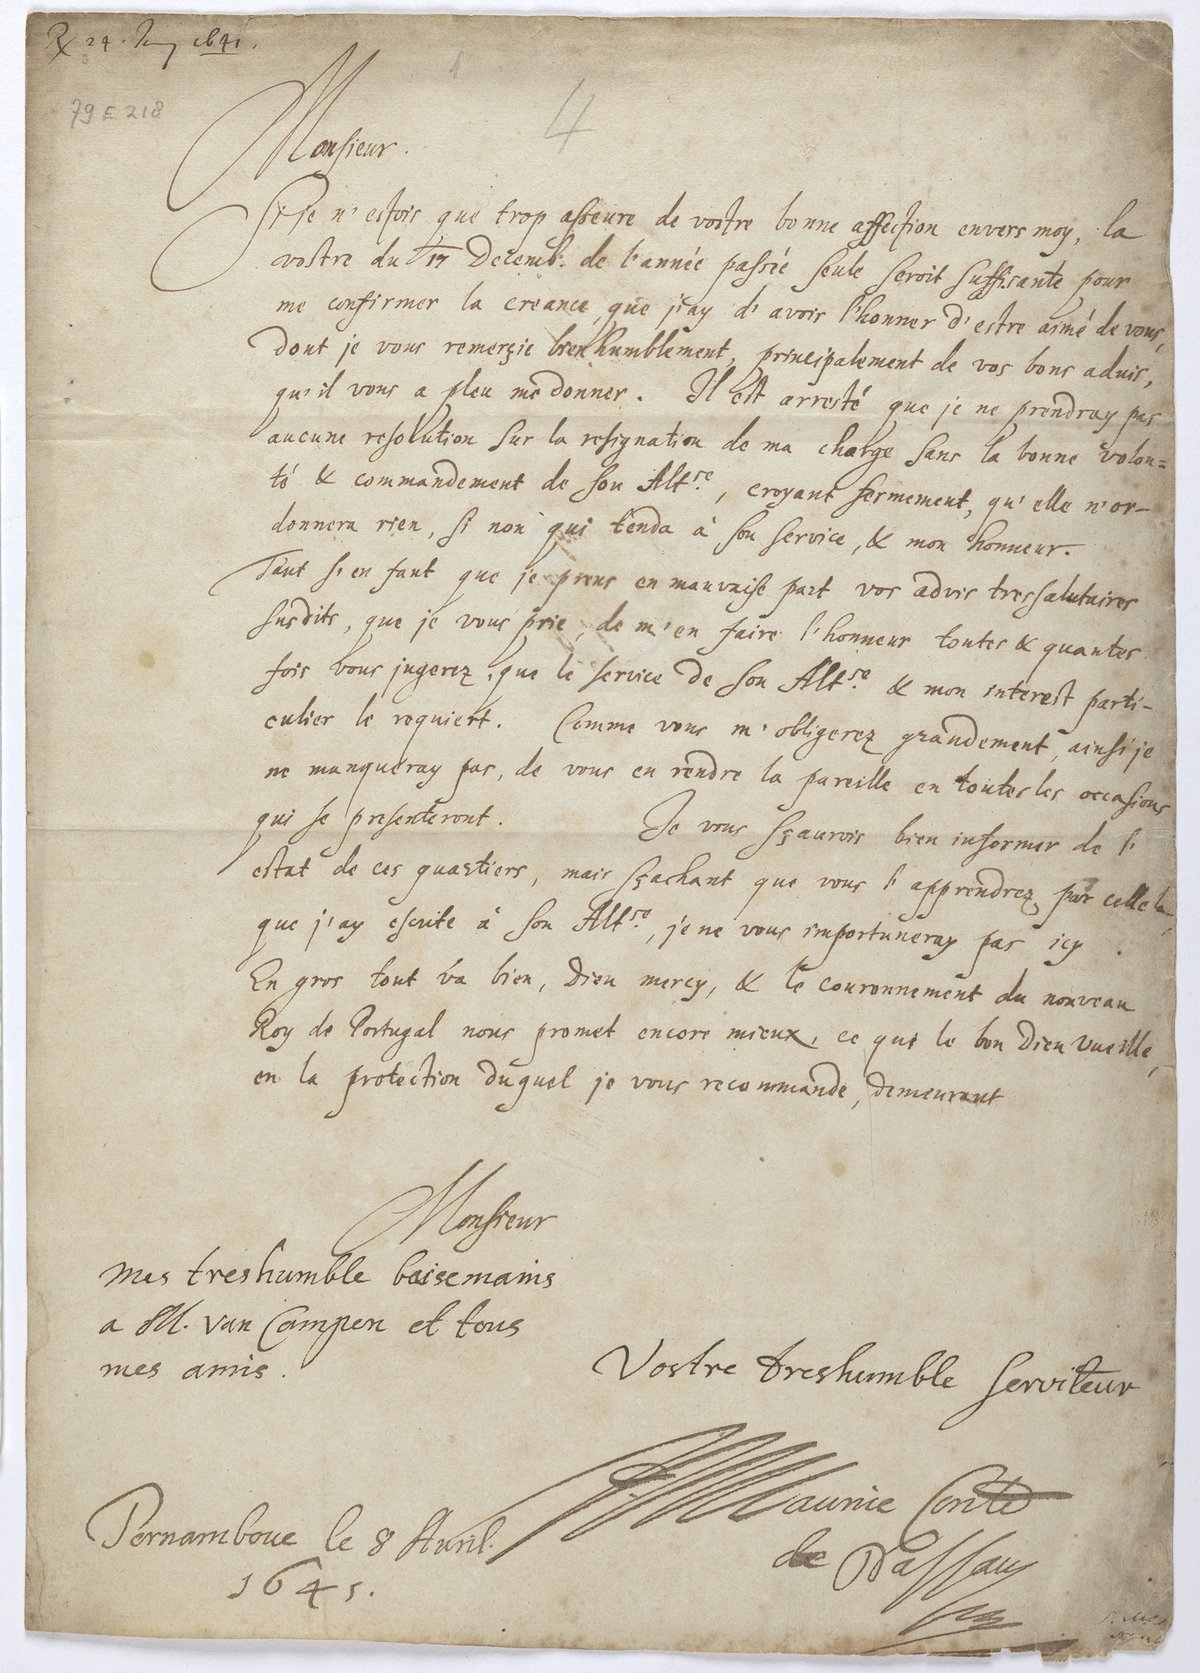 24. 1641.
79 E 218
1
4
Monsieur.
Si je n'estois que trop asseuré de vostre bonne affection envers moy, la
vostre du 17 Decemb. de l'année passée seule seroit suffisante pour
me confirmer la creance, que j'ay d'avoir l'honner d'estre aimé de vous,
dont je vous remerçie bien humblement, principalement de vos bons aduis,
qu'il vous a pleu me donner. Il est arresté que je ne prendray pas
aucune resolution sur la resignation de ma charge sans la bonne volon=
té & commandement de son Alt.se, croyant fermement, qu'elle n'or-
donnera rien, si non qui tenda à son service, & mon honneur.
Tant s'en faut que je prens en mauvaise part vos advis tressalutaires
susdits, que je vous prie, de m'en faire l'honneur toutes & quantes
fois vous jugerez, que le service de son Alt.se & mon interest parti-
culier le requiert. Comme vous m'obligerez grandement, ainsi je
ne manqueray pas, de vous en rendre la pareille en toutes les occasions
qui se presenteront. Je vous sçaurois bien informer de l'
estat de ces quartiers, mais sçachant que vous l'apprendrez par celle la,
que j'ay escrite à son Alt.se, je ne vous importuneray pas icy.
En gros tout va bien, Dieu mercy, & le couronnement du nouveau
Roy de Portugal nous promet encore mieux, ce que le bon Dieu vueille,
en la protection duquel je vous recommande, demeurant
Monsieur
mes treshumble baisemains
a M. van Campen et tous
mes amis.
Vostre treshumble serviteur
J. Maurice Conte
de Nassau
Pernambouc le 8 Avril.
1641.